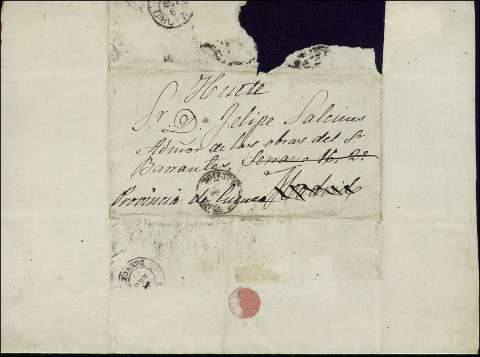 Huete
Sr. Dn. Felipe Salcines
Admor. de las obras del Sr.
Barrantes, Serrano 16, 2º
Madrid
Provincia de Cuenca